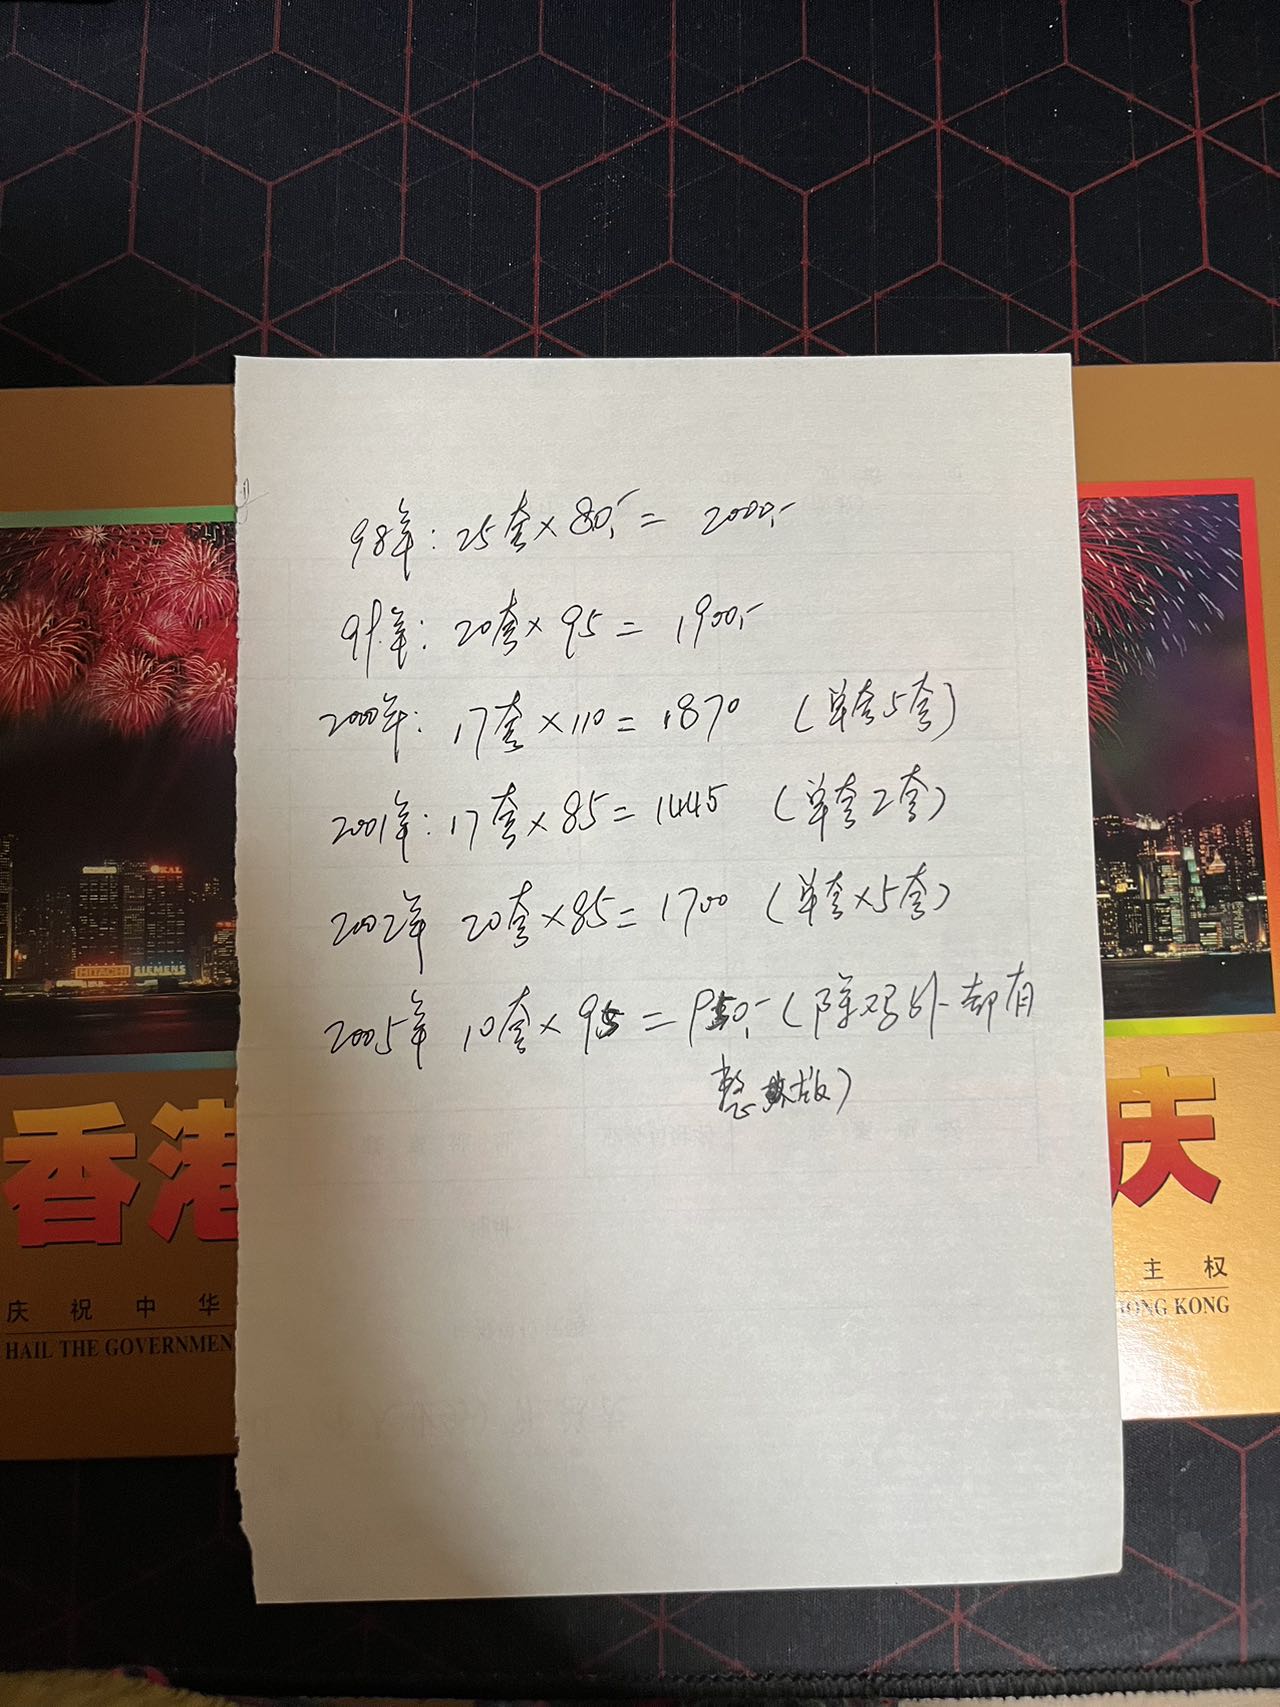 98年：25套×80,- = 2000,-
99年：20套×95 = 1900,-
2000年：17套×110 = 1870 （单套5套）
2001年：17套×85 = 1445 （单套2套）
2002年 20套×85 = 1700 （单套×5套）
2005年 10套×95 = 950,- （除鸡外却有
整版）
KAL
HITACHI SIEMENS
香港
庆
庆祝中华
主权
HAIL THE GOVERNMEN
HONG KONG